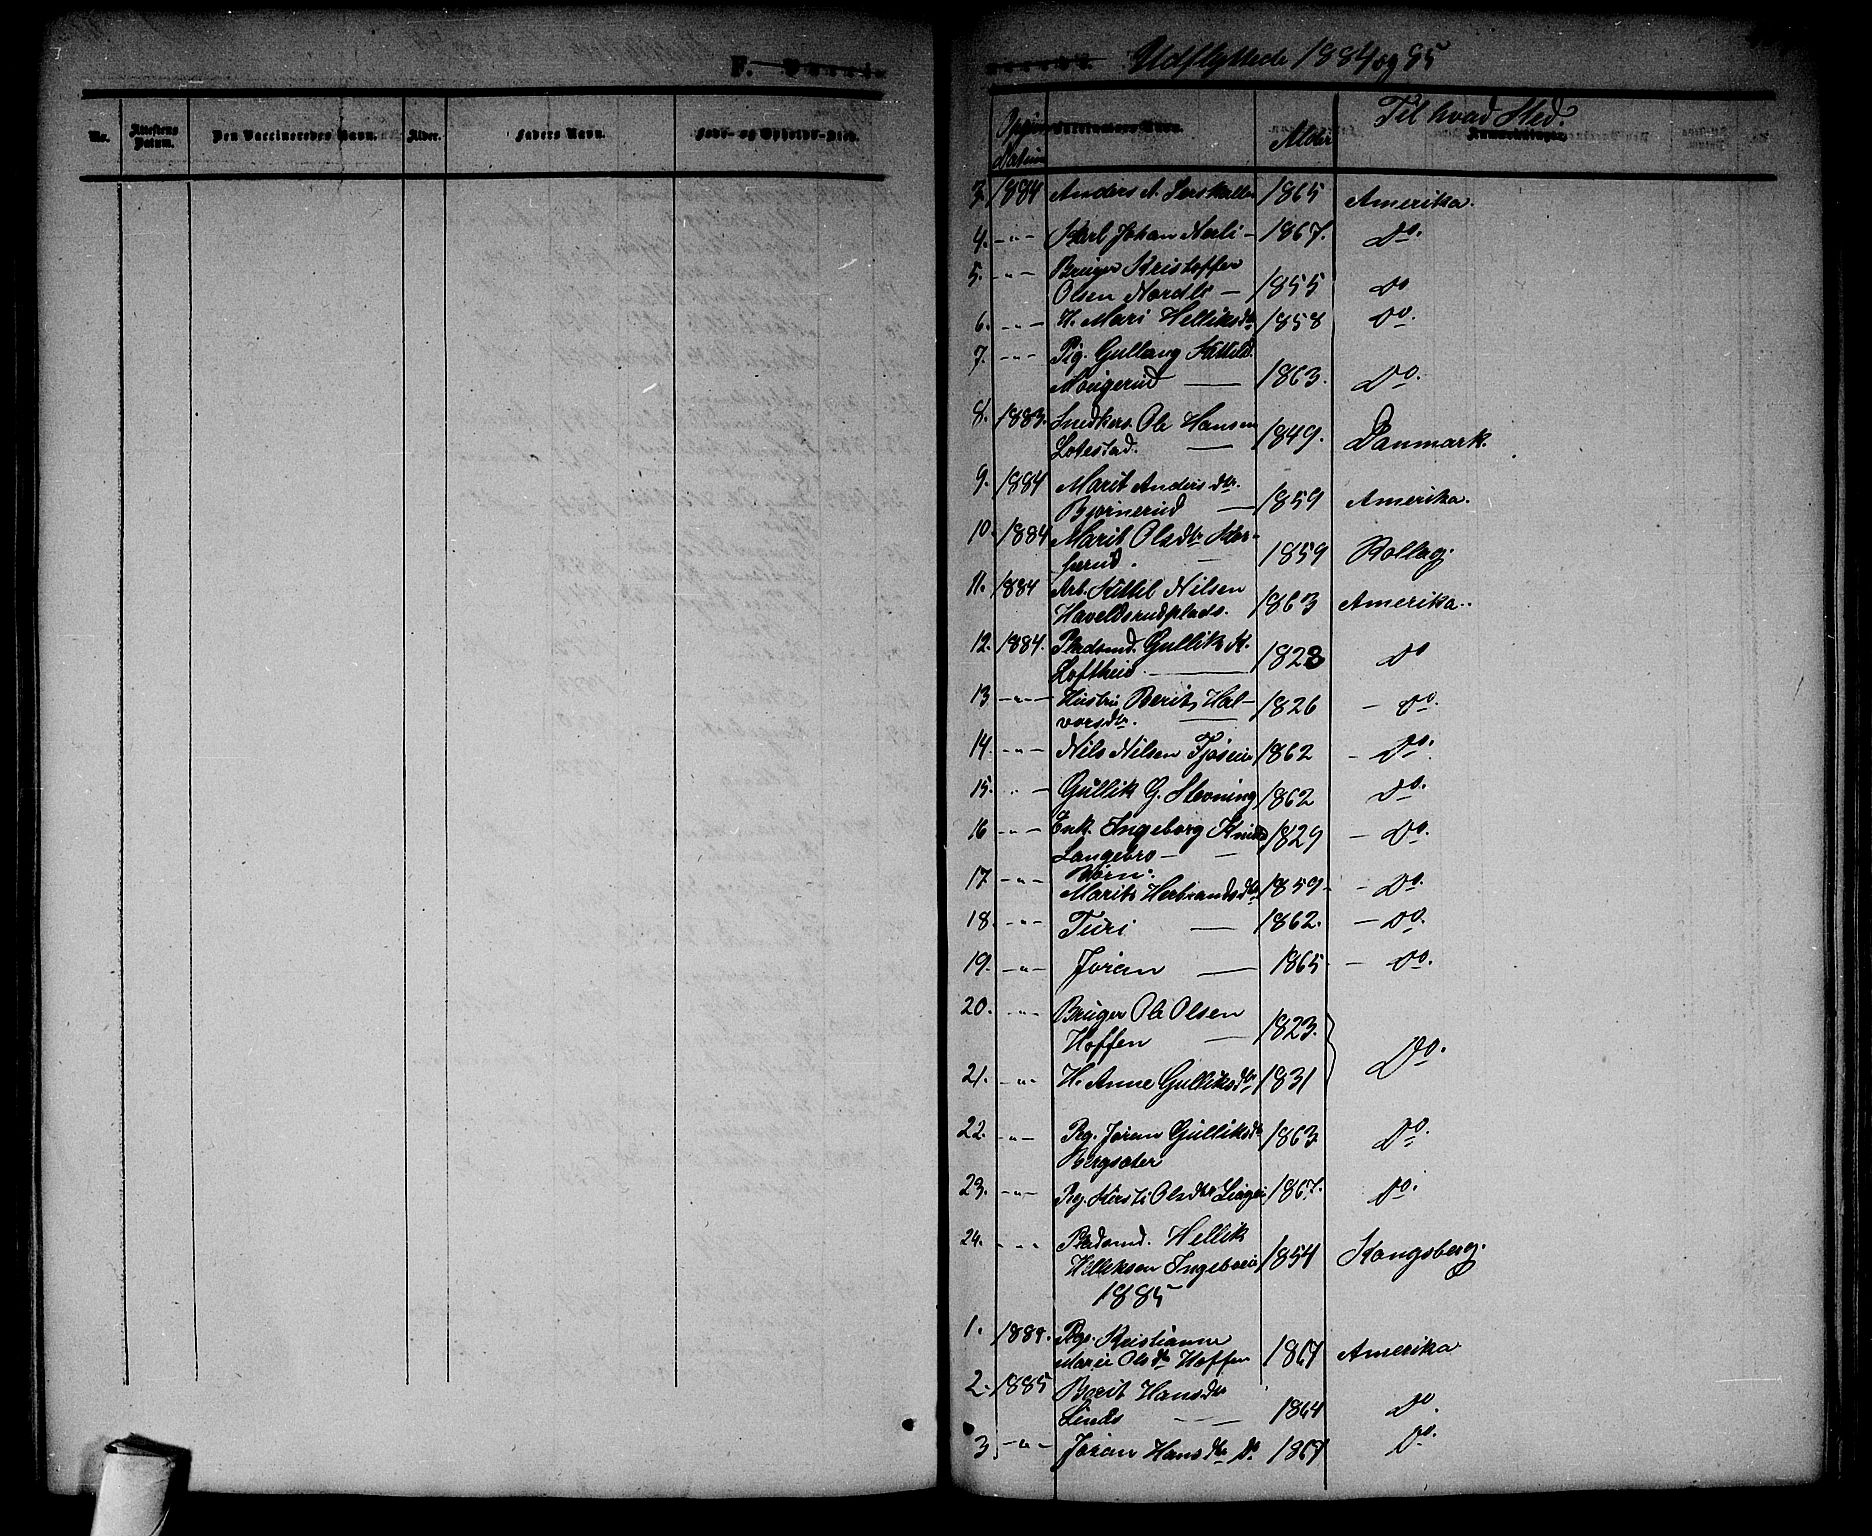 F.
No.
Attestens Datum.
Den Vaccineredes Navn.
Alder.
Faders Navn.
Føde- og Opholds-Sted.
Udflyttede 1884 og 85
Datum
Vaccinators Navn.
Alder
Til hvad Sted.
Anmærkninger.
3. 1884 Anders A. 1865 Amerika.
4. -"- Karl Johan Nerli - 1867. Do.
5. -"- Bruger Kristoffer
Olsen Nordli - 1855 Do
6. -"- H. Mari Helliksdtr 1858 Do.
7. -"- Pig. Gullaug Kittild.
Mougerud — 1863. Do.
8. 1883. Snedkers. Ole Hansen
Lolestad. — 1849. Danmark.
9. 1884 Marit Andersdtr.
Bjørnerud — 1859 Amerika.
10. 1884 Marit Olsdtr
— 1859 Rollag.
11. 1884 Arb. Kittil Nilsen
Haveldsrudplads. 1863 Amerika.
12. 1884. Pladsmd. Gullik K.
Loftheid — 1828 Do
13 -"- Hustru Berit Hal-
vorsdtr. — 1826 - Do.
14. -"- Nils Nilsen 1862 - Do.
15. " - Gullik G. Stevning 1862 Do.
16 -"- Enk. Ingeborg Knudsd
Langebro - — 1829 - Do.
17 -"- Børn:
Marit Herbrandsdtr 1859 - Do.
18. -"- Turi — 1862. - Do.
19. -"- Joran — 1865 - Do.
20. -"- Bruger Ole Olsen
Hoffen — 1823.
21. -"- H. Anne Gulliksdtr 1831 Do.
22. -"- Pig. Joran Gulliksdtr 1863 Do.
Bergsæter
23. -"- Pig. Kirsti Olsdtr 1867. Do.
24. -"- Pladsmd. Hellik
Helliksen 1854 Kongsberg.
1885
1. 1884. Pige. Kristianne
Marie Olsdtr Hoffen 1867 Amerika
2. 1885 Berit Hansdtr
— 1864 Do.
3 -"- Joran Hansdtr Do 1867 Do.